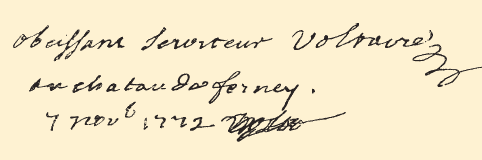 obeissant serviteur Voltaire
au chatau de ferney.
7 novᵇ 1772